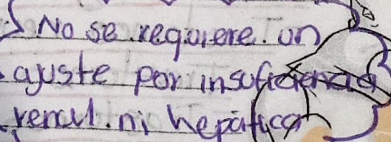 No se requiere un
ajuste por insuficiencia
renal. ni hepatica